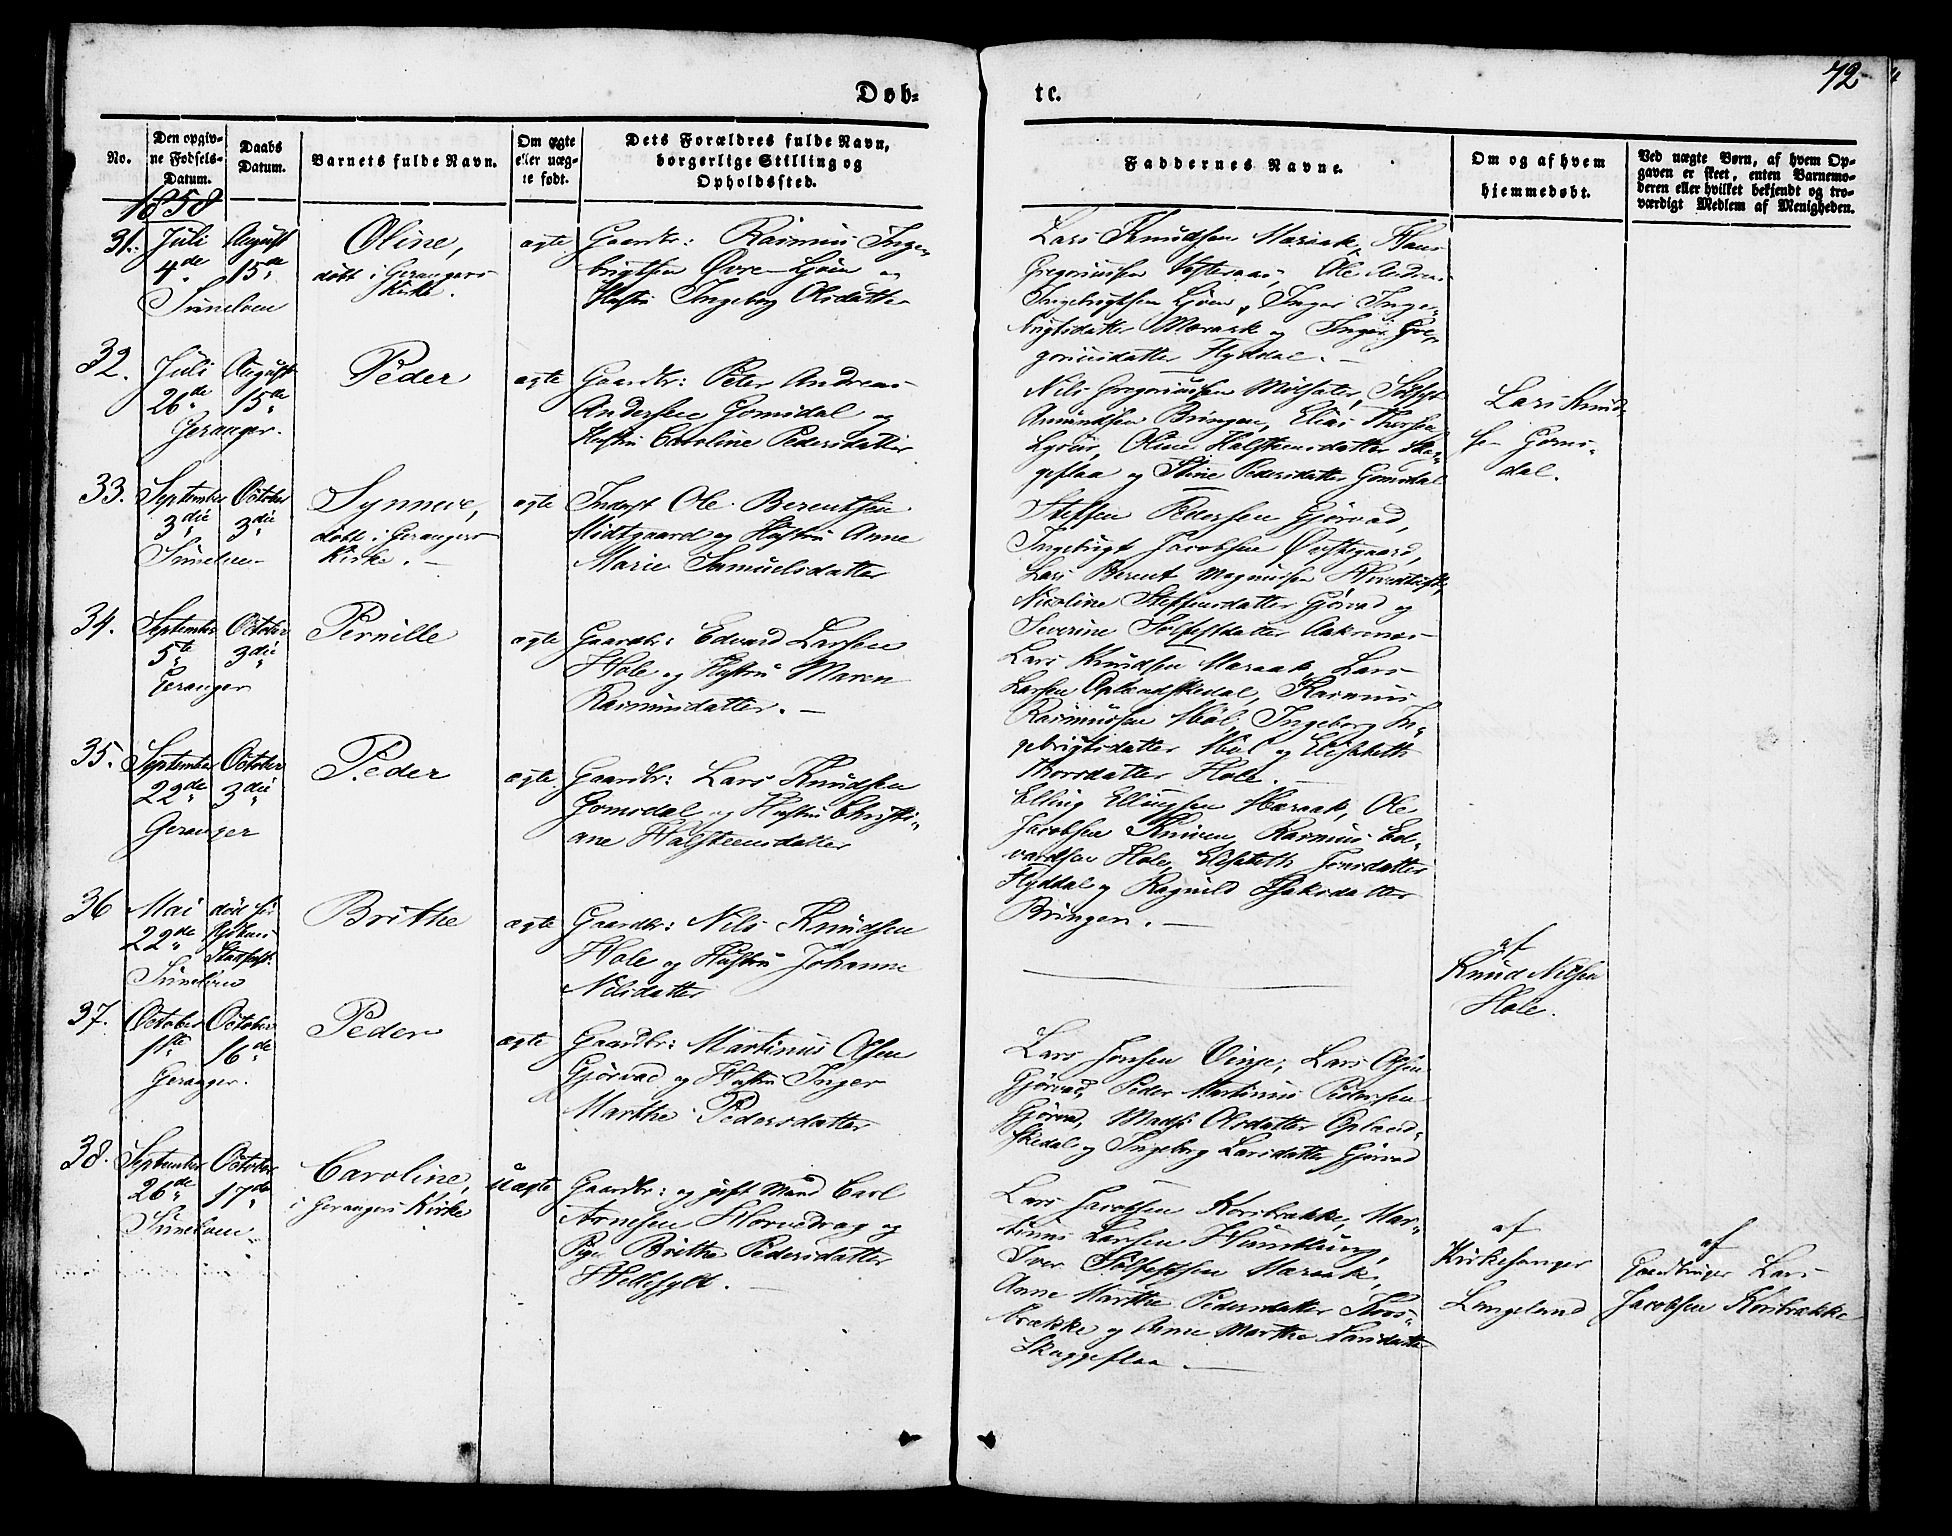 Døb-
te.
72
No.
Den opgiv-
ne Fødsels-
Datum.
Daabs
Datum.
Barnets fulde Navn.
Om ægte
eller uæg-
te født.
Dets Forældres fulde Navn,
borgerlige Stilling og
Opholdssted.
Faddernes Navne.
Om og af hvem
hjemmedøbt.
Ved uægte Børn, af hvem Op-
gaven er skeet, enten Barnemo-
deren eller hvilket bekjendt og tro-
værdigt Medlem af Menigheden.
1858
31.
Juli
4de
Sunelven
August
15de
Oline,
døbt i Gerangers
Kirke.
ægte
Gaardbr: Rasmus Inge-
brigtsen Øvre-Ljøen og
Hustru Ingeborg Olsdatter
Lars Knudsen Maraak, Hans
Gregoriussen Vesteraas, Ole Andreas
Ingebrigtsen Ljøen, Inger Inge-
brigtsdatter Maraak og Inger Gre-
goriusdatter Flyddal. -
32.
Juli
26de
Geranger.
August
15de
Peder
ægte
Gaardbr: Peter Andreas
Andersen Gomsdal og
Hustru Caroline Pedersdatter
Nils Gregoriussen Møllsæter,
Amundsen Bringen, Elias Thorsen
Oline Halsteensdatter Ska-
geflaa og Stine Pedersdatter Gomsdal
Lars Knud-
sen Goms-
dal.
33.
September
3die
Sunelven
October
3die
Synneve,
døbt i Gerangers
Kirke. -
ægte
Inderst Ole Berentsen
Midtgaard og Hustru Anne
Marie Samuelsdatter
Steffen Pedersen Gjørvad,
Ingebrigt Jacobsen Østegaard,
Lars Berent Magnussen
Nicoline Steffensdatter Gjørvad og
Severine Aakernes
34.
September
5te
Geranger
October
3die
Pernille
ægte
Gaardbr: Edvard Larsen
Hole og Hustru Maren
Rasmusdatter. -
Lars Knudsen Maraak, Lars
Larsen Oplendskedal, Rasmus
Rasmussen Møl, Ingeborg In-
gebrigtsdatter Møl og Elisabeth
Thorsdatter Hole.
35.
September
22de
Geranger
October
3die
Peder
ægte
Gaardbr: Lars Knudsen
Gomsdal og Hustru Christi-
ane Halsteensdatter
Elling Ellingsen Maraak, Ole
Jacobsen Kniven, Rasmus Ed-
vardsen Hole, Elisabeth Jonsdatter
Flyddal og Ragnild Isaksdatter
Bringen. -
36
Mai
22de
Sunelven
død før
Daabens
Stadfæst.
Brithe
ægte
Gaardbr: Nils Knudsen
Hole og Hustru Johanne
Nilsdatter
af
Knud Nilsen
Hole.
37.
October
1ste
Geranger.
October
16de
Peder
ægte
Gaardbr: Martinus Olsen
Gjørvad og Hustru Inger
Marthe Pedersdatter
Lars Jonsen Vinje, Lars Olsen
Gjørvad, Peder Martinus Pedersen
Gjørvad, Madsi Olsdatter Opland-
skedal og Ingeborg Larsdatter Gjørvad
38.
September
26de
Sunelven
October
17de
Caroline,
i Gerangers Kirke
uægte
Gaardbr: og gift Mand Carl
Arnesen Hornedrag og
Pige Brithe Pedersdatter
Hellesylt. -
Lars Jacobsen Korsbrække, Mar-
tinus Larsen
Iver Maraak,
Anne Marthe Pedersdatter Kors-
brække og Anne Marthe Larsdatter
Skaggeflaa -
af
Kirkesanger
Langeland
af
Gaardbruger Lars
Jacobsen Korsbrække